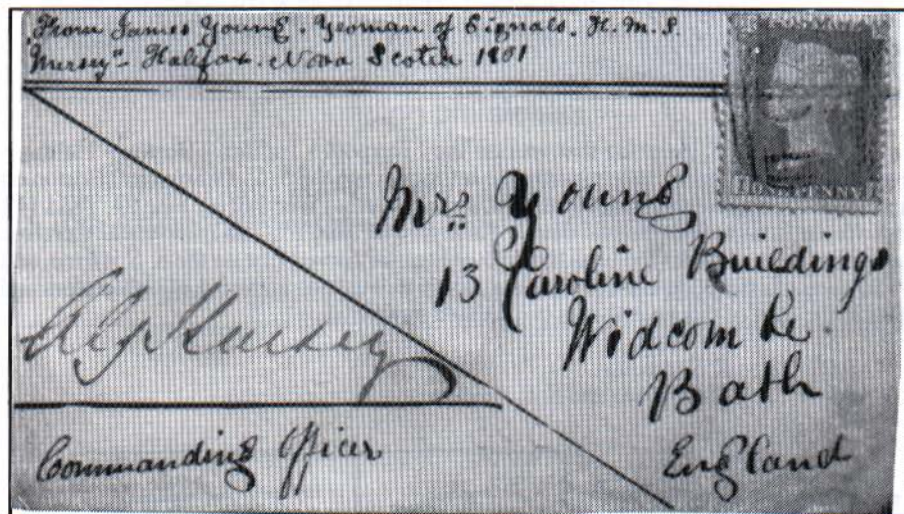 From James Young. Yeoman of Signals. H.M.S.
Mersey - Halifax. Nova Scotia 1861
Mrs Young
13 Caroline Buildings
Widcombe
Bath
England
Commanding Officer
ONE PENNY